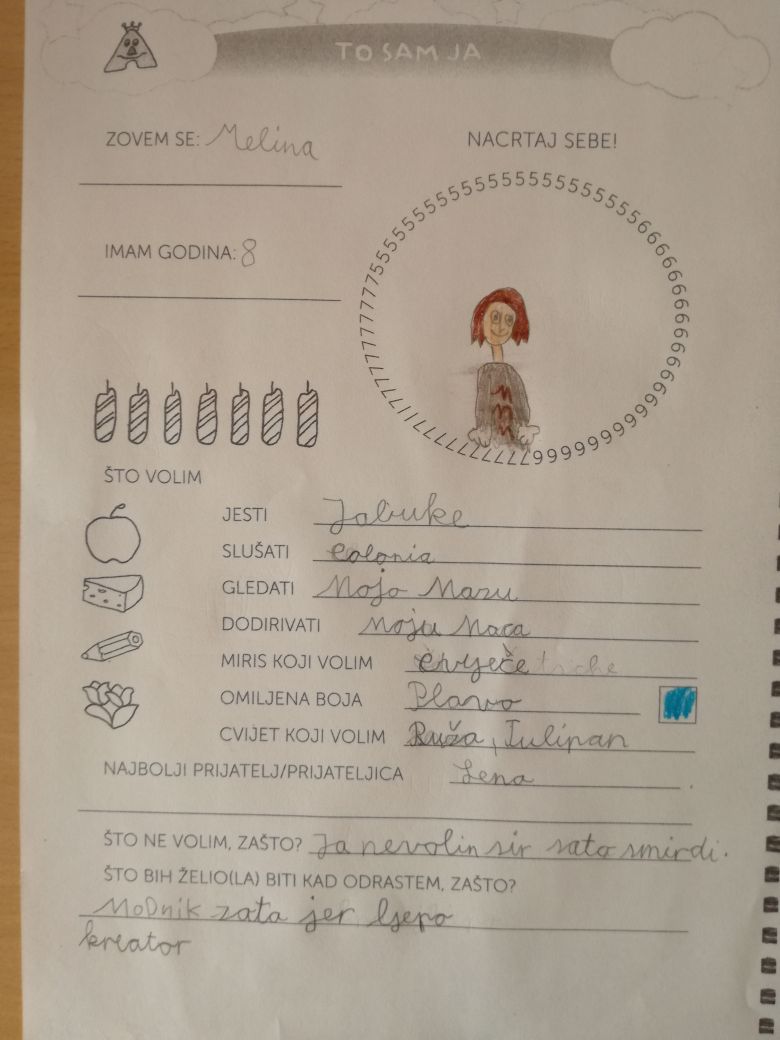 TO SAM JA
ZOVEM SE: Melina
NACRTAJ SEBE!
IMAM GODINA: 8
ŠTO VOLIM
JESTI Jabuke
SLUŠATI Colonia
GLEDATI Moja Mazu
DODIRIVATI Moju Maca
MIRIS KOJI VOLIM Cvječe
OMILJENA BOJA Plavo
CVIJET KOJI VOLIM Ruža, Tulipan
NAJBOLJI PRIJATELJ/PRIJATELJICA Lena
ŠTO NE VOLIM, ZAŠTO? Ja nevolin sir sato smirdi.
ŠTO BIH ŽELIO(LA) BITI KAD ODRASTEM, ZAŠTO?
MoDnik zata jer ljepo
kreator